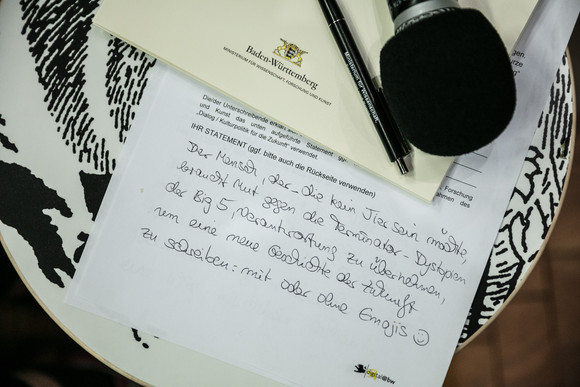 Baden-Württemberg
MINISTERIUM FÜR WISSENSCHAFT, FORSCHUNG UND KUNST
Der/der Unterschreibende erklärt
und Kunst das unten aufgeführte Statement
"Dialog / Kulturpolitik für die Zukunft" verwendet.
Forschung
ahmen des
IHR STATEMENT (ggf. bitte auch die Rückseite verwenden)
Der Mensch, der - die kein Tier sein möchte,
braucht Mut gegen die Terminator-Dystopien
der Big 5, Verantwortung zu übernehmen,
um eine neue Geschichte der Zukunft
zu schreiben: mit oder ohne Emojis ☺
digital@bw